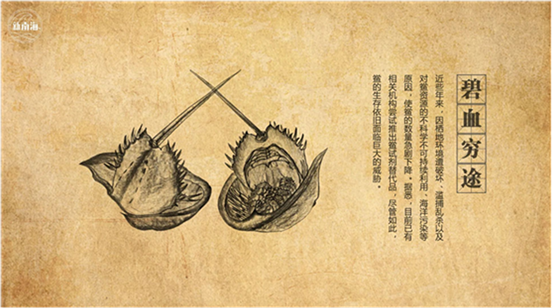 碧血穷途
近些年来，因栖地环境遭破坏、滥捕乱杀以及
对鲎资源的不科学不可持续利用、海洋污染等
原因，使鲎的数量急剧下降。据悉，目前已有
相关机构尝试推出鲎试剂替代品，尽管如此，
鲎的生存依旧面临巨大的威胁。